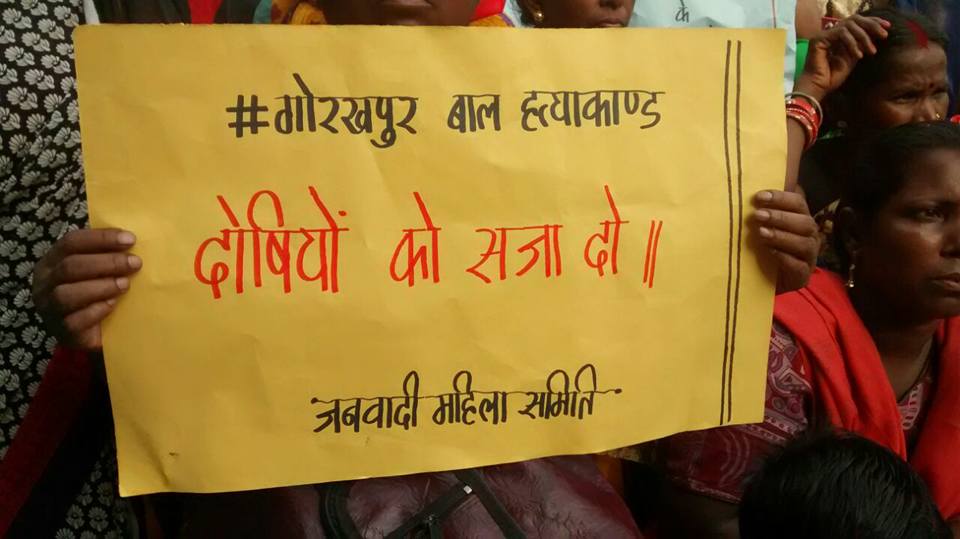 के
#गोरखपुर बाल हत्याकाण्ड
दोषियों को सजा दो ॥
जनवादी महिला समिति